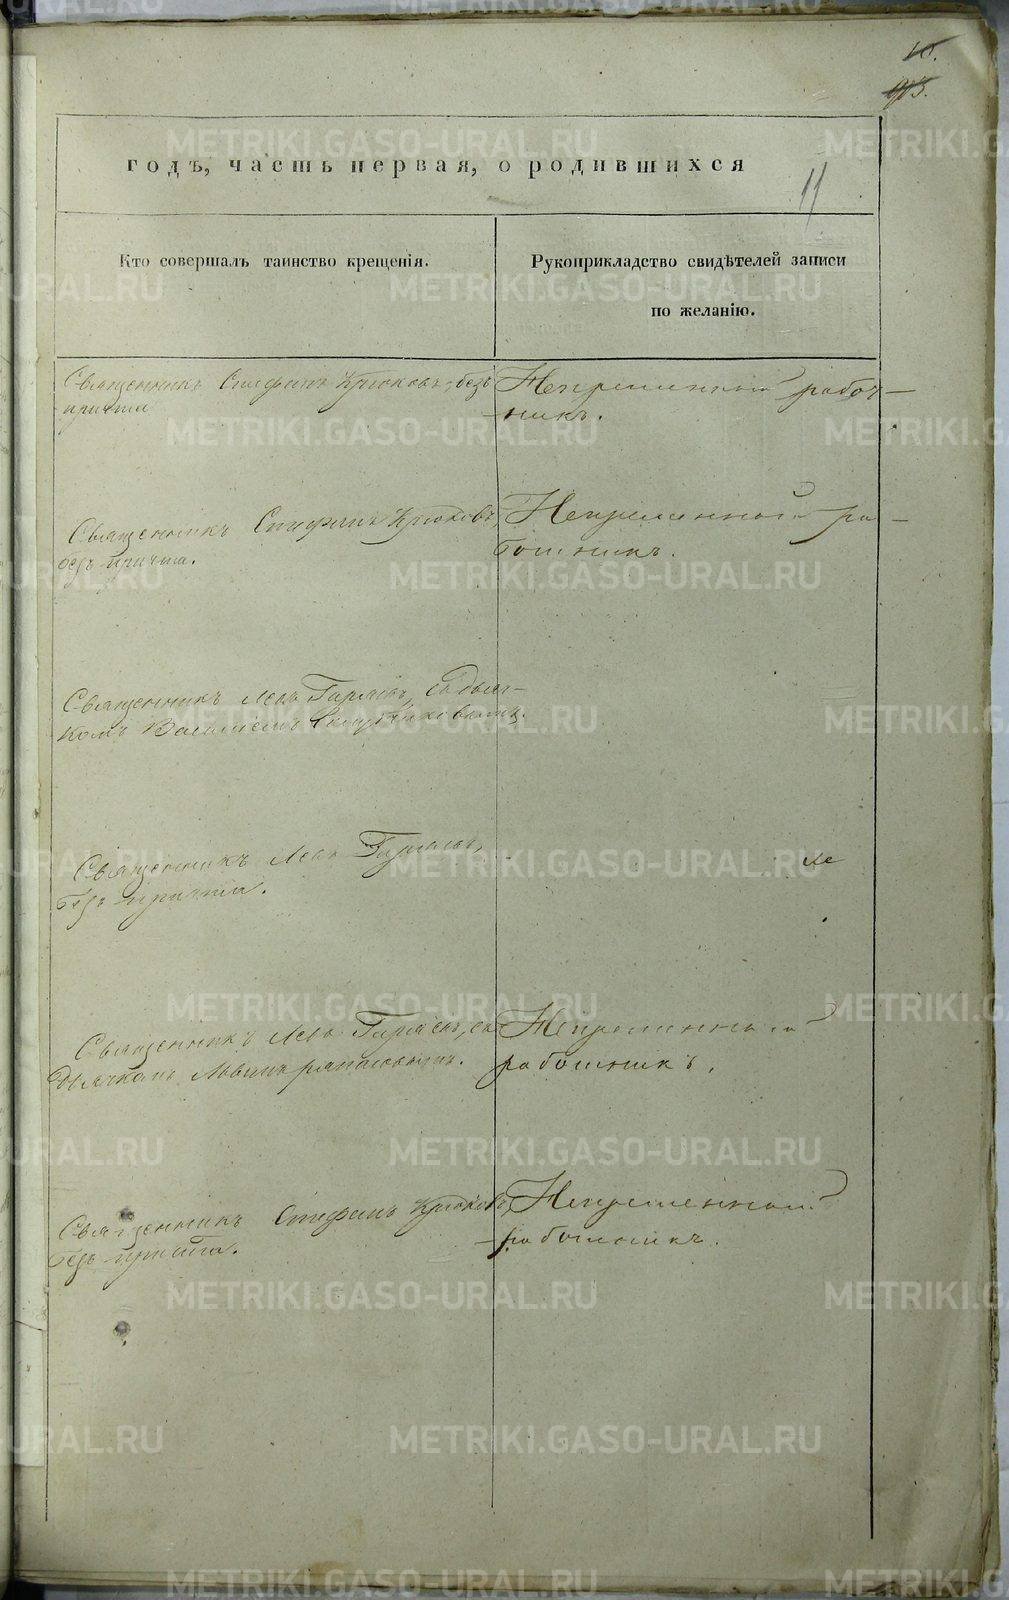 10.
11
годъ, часть первая, о родившихся
Кто совершалъ таинство крещенія.
Рукоприкладство свидѣтелей записи
по желанію.
Священникъ Стефанъ Крюковъ, безъ
причта
Непременный работ-
никъ.
Священникъ Стефанъ Крюковъ,
безъ причта.
Непременный ра-
ботникъ.
Священникъ Левъ Гаряевъ, съ дьяч-
комъ Василіемъ
Священникъ Левъ Гаряевъ,
безъ причта.
Священникъ Левъ Гаряевъ, съ
дьячкомъ
Непременный
работникъ.
Священникъ Стефанъ Крюковъ,
безъ причта.
Непременный
работникъ.
METRIKI.GASO-URAL.RU